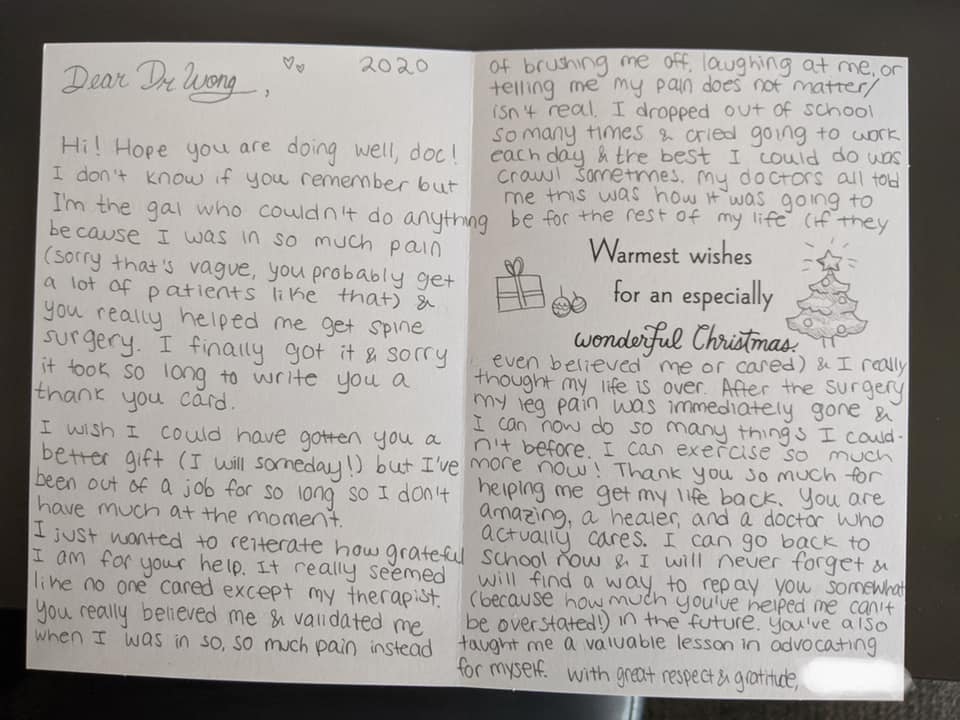 2020
Dear Dr Wong,
Hi! Hope you are doing well, doc!
I don't know if you remember but
I'm the gal who couldn't do anything
because I was in so much pain
(sorry that's vague, you probably get
a lot of patients like that) &
you really helped me get spine
surgery. I finally got it & sorry
it took so long to write you a
thank you card.
I wish I could have gotten you a
better gift (I will someday!) but I've
been out of a job for so long so I don't
have much at the moment.
I just wanted to reiterate how grateful
I am for your help. It really seemed
like no one cared except my therapist.
You really believed me & validated me
when I was in so, so much pain instead
of brushing me off, laughing at me, or
telling me my pain does not matter/
isn't real. I dropped out of school
so many times & cried going to work
each day & the best I could do was
crawl sometimes. My doctors all told
me this was how it was going to
be for the rest of my life (if they
Warmest wishes
for an especially
wonderful Christmas.
even believed me or cared) & I really
thought my life is over. After the surgery
my leg pain was immediately gone &
I can now do so many things I could-
n't before. I can exercise so much
more now! Thank you so much for
helping me get my life back. You are
amazing, a healer, and a doctor who
actually cares. I can go back to
school now & I will never forget &
will find a way to repay you somewhat
(because how much you've helped me can't
be overstated!) in the future. You've also
taught me a valuable lesson in advocating
for myself. With great respect & gratitude,